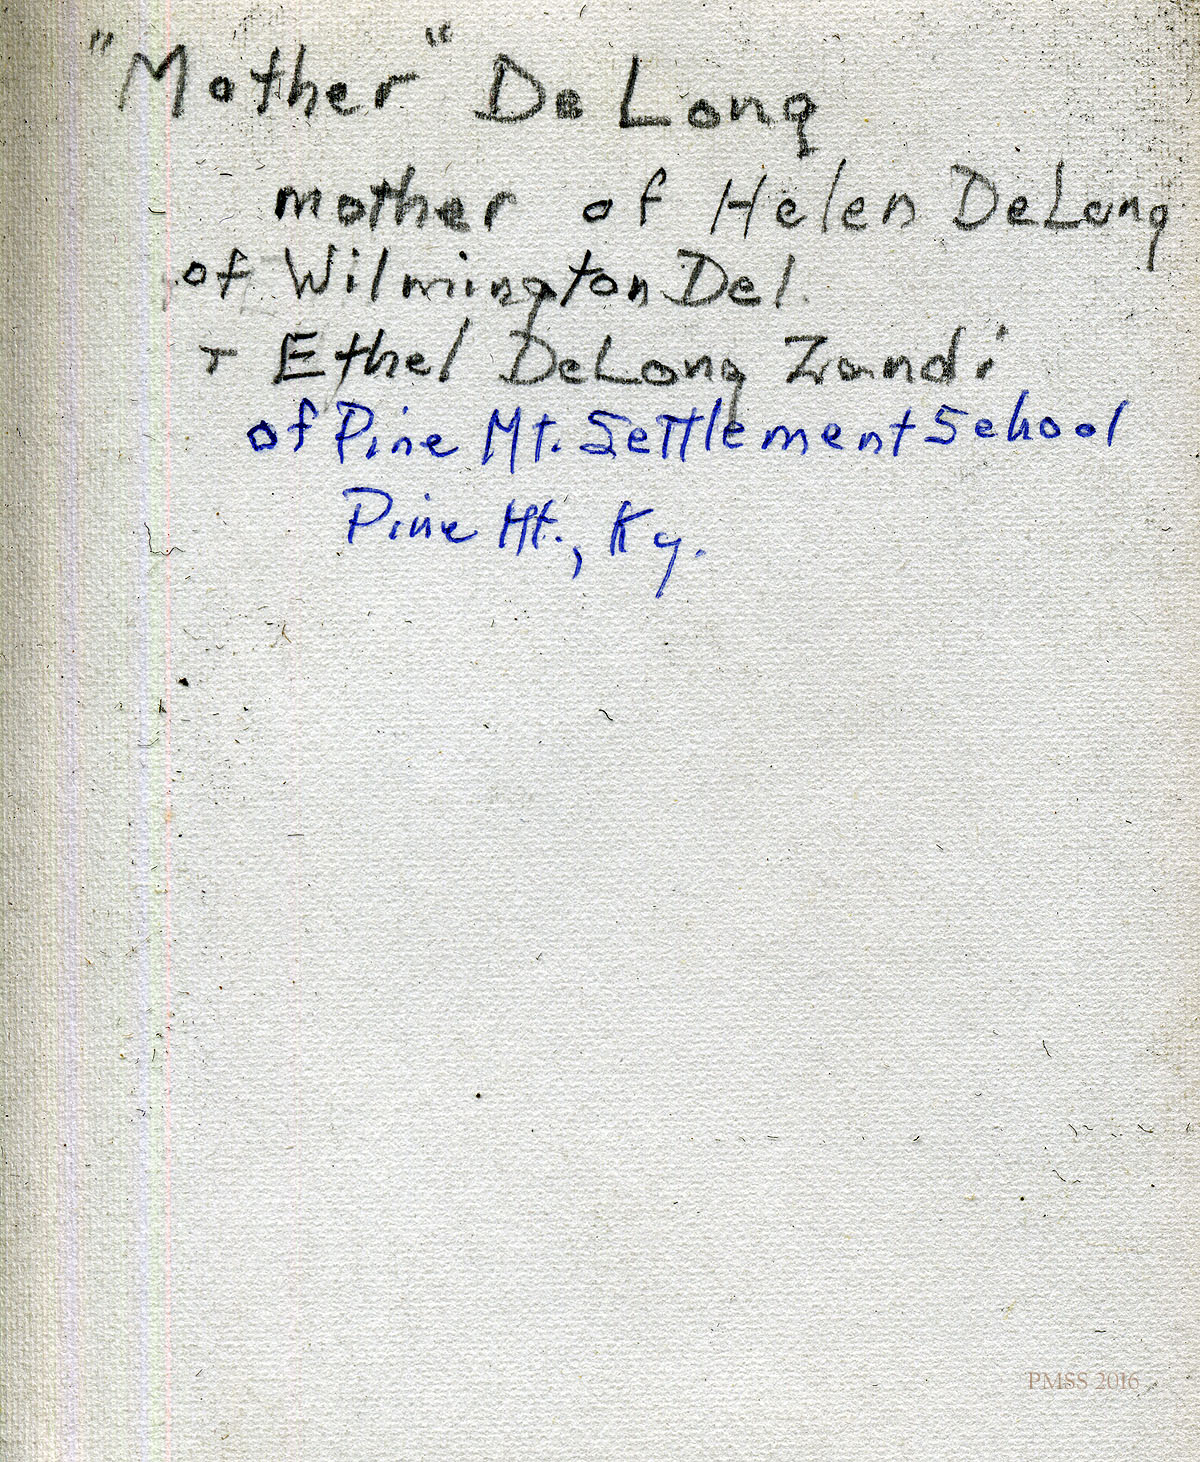 "Mother" DeLong
mother of Helen DeLong
of Wilmington Del.
+ Ethel DeLong Zandi
of Pine Mt. Settlement School
Pine Mt., Ky.
PMSS 2016